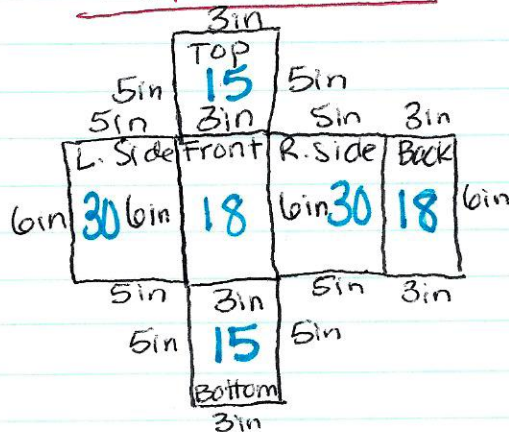 3in
Top
5in 15 5in
5in 3in 5in 3in
L. Side Front R. Side Back
6in 30 6in 18 6in 30 18 6in
5in 3in 5in 3in
5in 15 5in
Bottom
3in